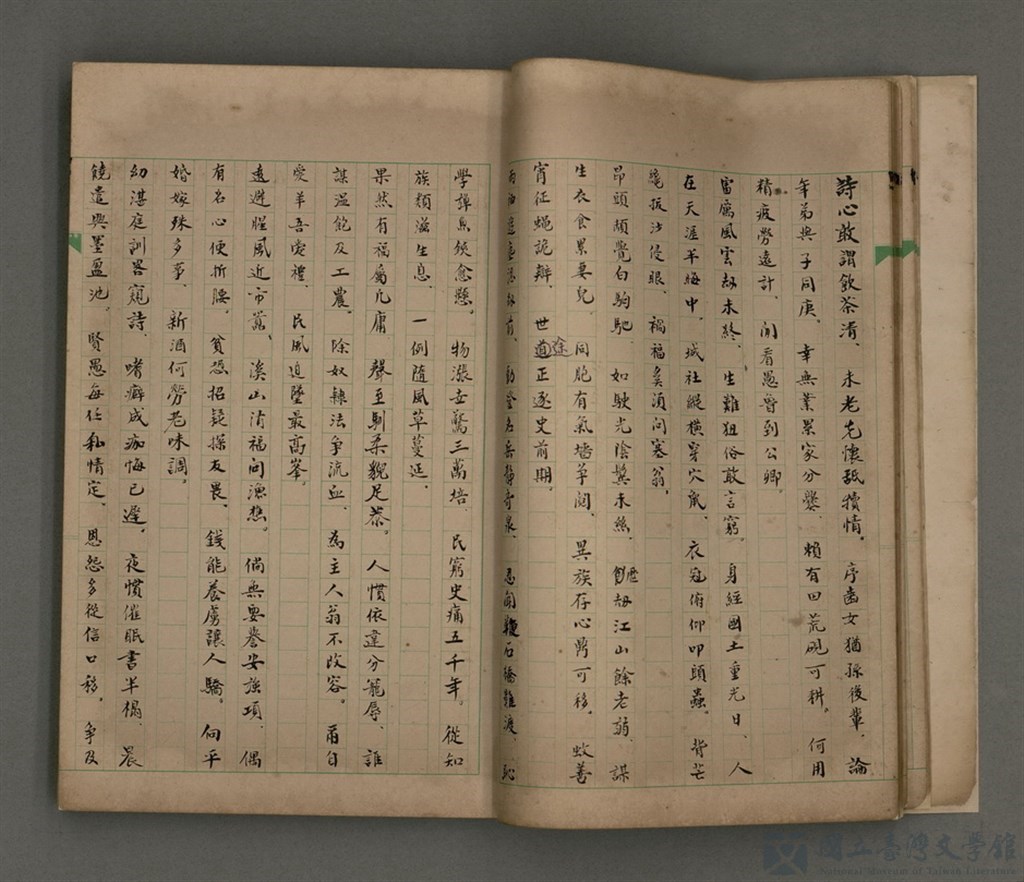 詩心敢謂飲茶清、未老先懷舐犢情。序齒女猶孫後輩、論
年弟與子同庚、幸無業累家分爨、賴有田荒硯可耕。何用
精疲勞遠計、閒看愚魯到公卿。
當膺風雲劫未終、生難狙俗敢言窮。身經國土重光日、人
在天涯半晦中。城社縱橫穿穴鼠、衣冠俯仰叩頭蟲。背芒
振沙侵眼、禍福奚須问塞翁。
昂頭頻覺白駒馳、如駛光陰鬓未絲、歷劫江山餘老弱、謀
生衣食累妻兒、同胞有氣墻爭鬩、異族存心鼎可移。蚊善
宵征蝇詭辯、世途正逐史前期。
學譁魚餒愈懸。物漲世驚三萬培、民窮史痛五千年。從知
族類滋生息、一例隨風草蔓延、
果然有福屬凡庸、聲至馴柔貌足恭、人慣依違分寵辱、誰
謀温飽及工農。除奴錬法爭流血、為主人翁不改容。甫自
愛羊吾愛禮、民風迫墜最高峯。
遠避腥風近市囂、溪山清福问漁樵。倘無要譽安強項、偶
有名心便折腰。貧憑招疑探友畏、錢能養虜讓人驕。向平
婚嫁殊多事、新酒何勞老味調。
幼湛庭訓畧窺詩、嗜癖成痂悔已遲。夜慣催眠書半榻、晨
饒遣興墨盈池。賢愚每任私情定、恩怨多從信口移。争及
國立臺灣文學館
National Museum of Taiwan Literature